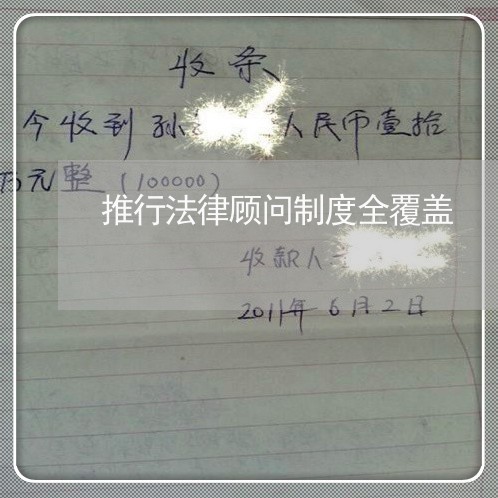 收条
今收到孙 人民币壹拾
万元整（100000）
推行法律顾问制度全覆盖
收款人
2011年6月2日